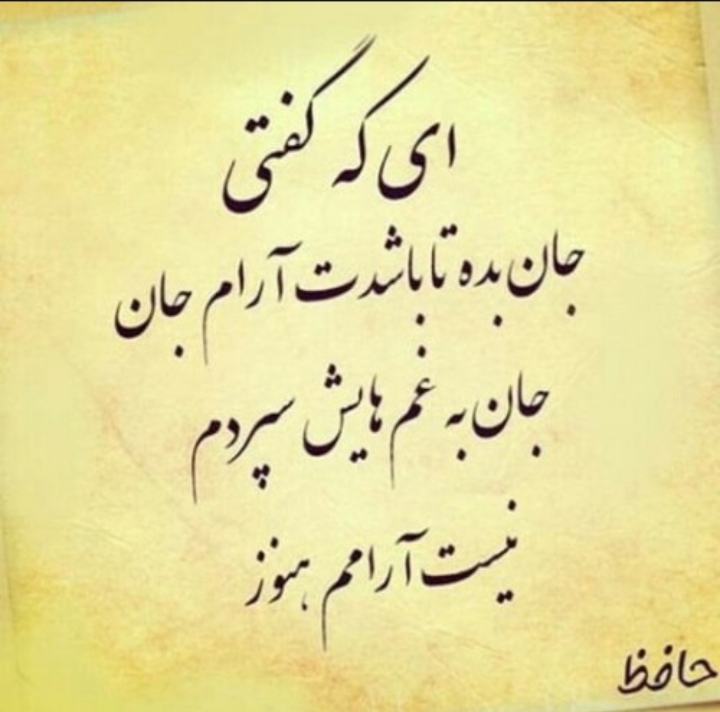 ای که گفتی
جان بده تا باشدت آرام جان
جان به غم هایش سپردم
نیست آرامم هنوز
حافظ